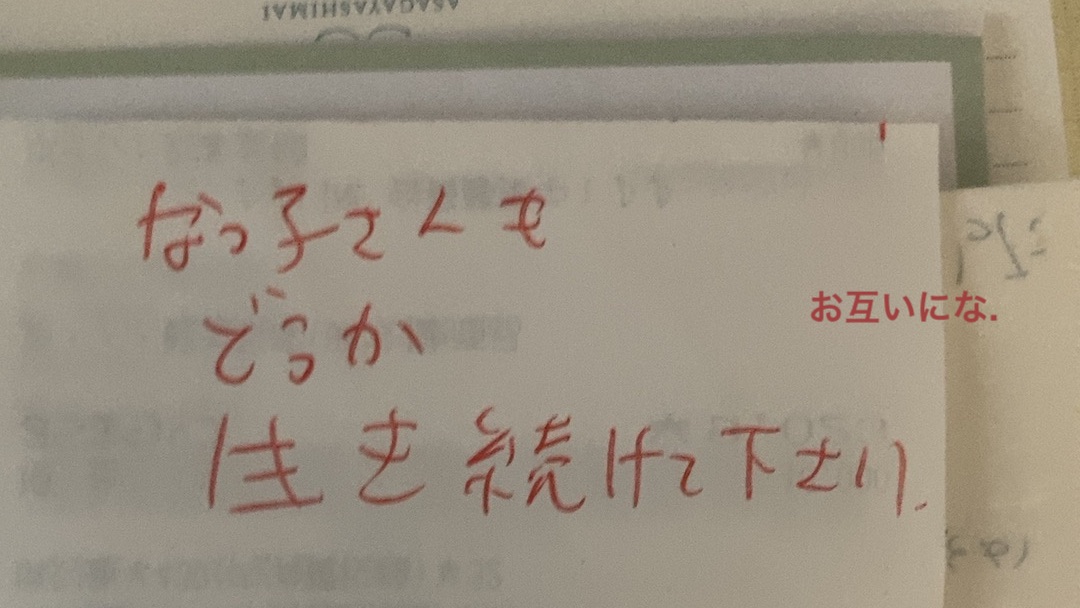 ASAGAYASHIMAI
なっ子さんも
どうか
お互いにな.
生き続けて下さい.